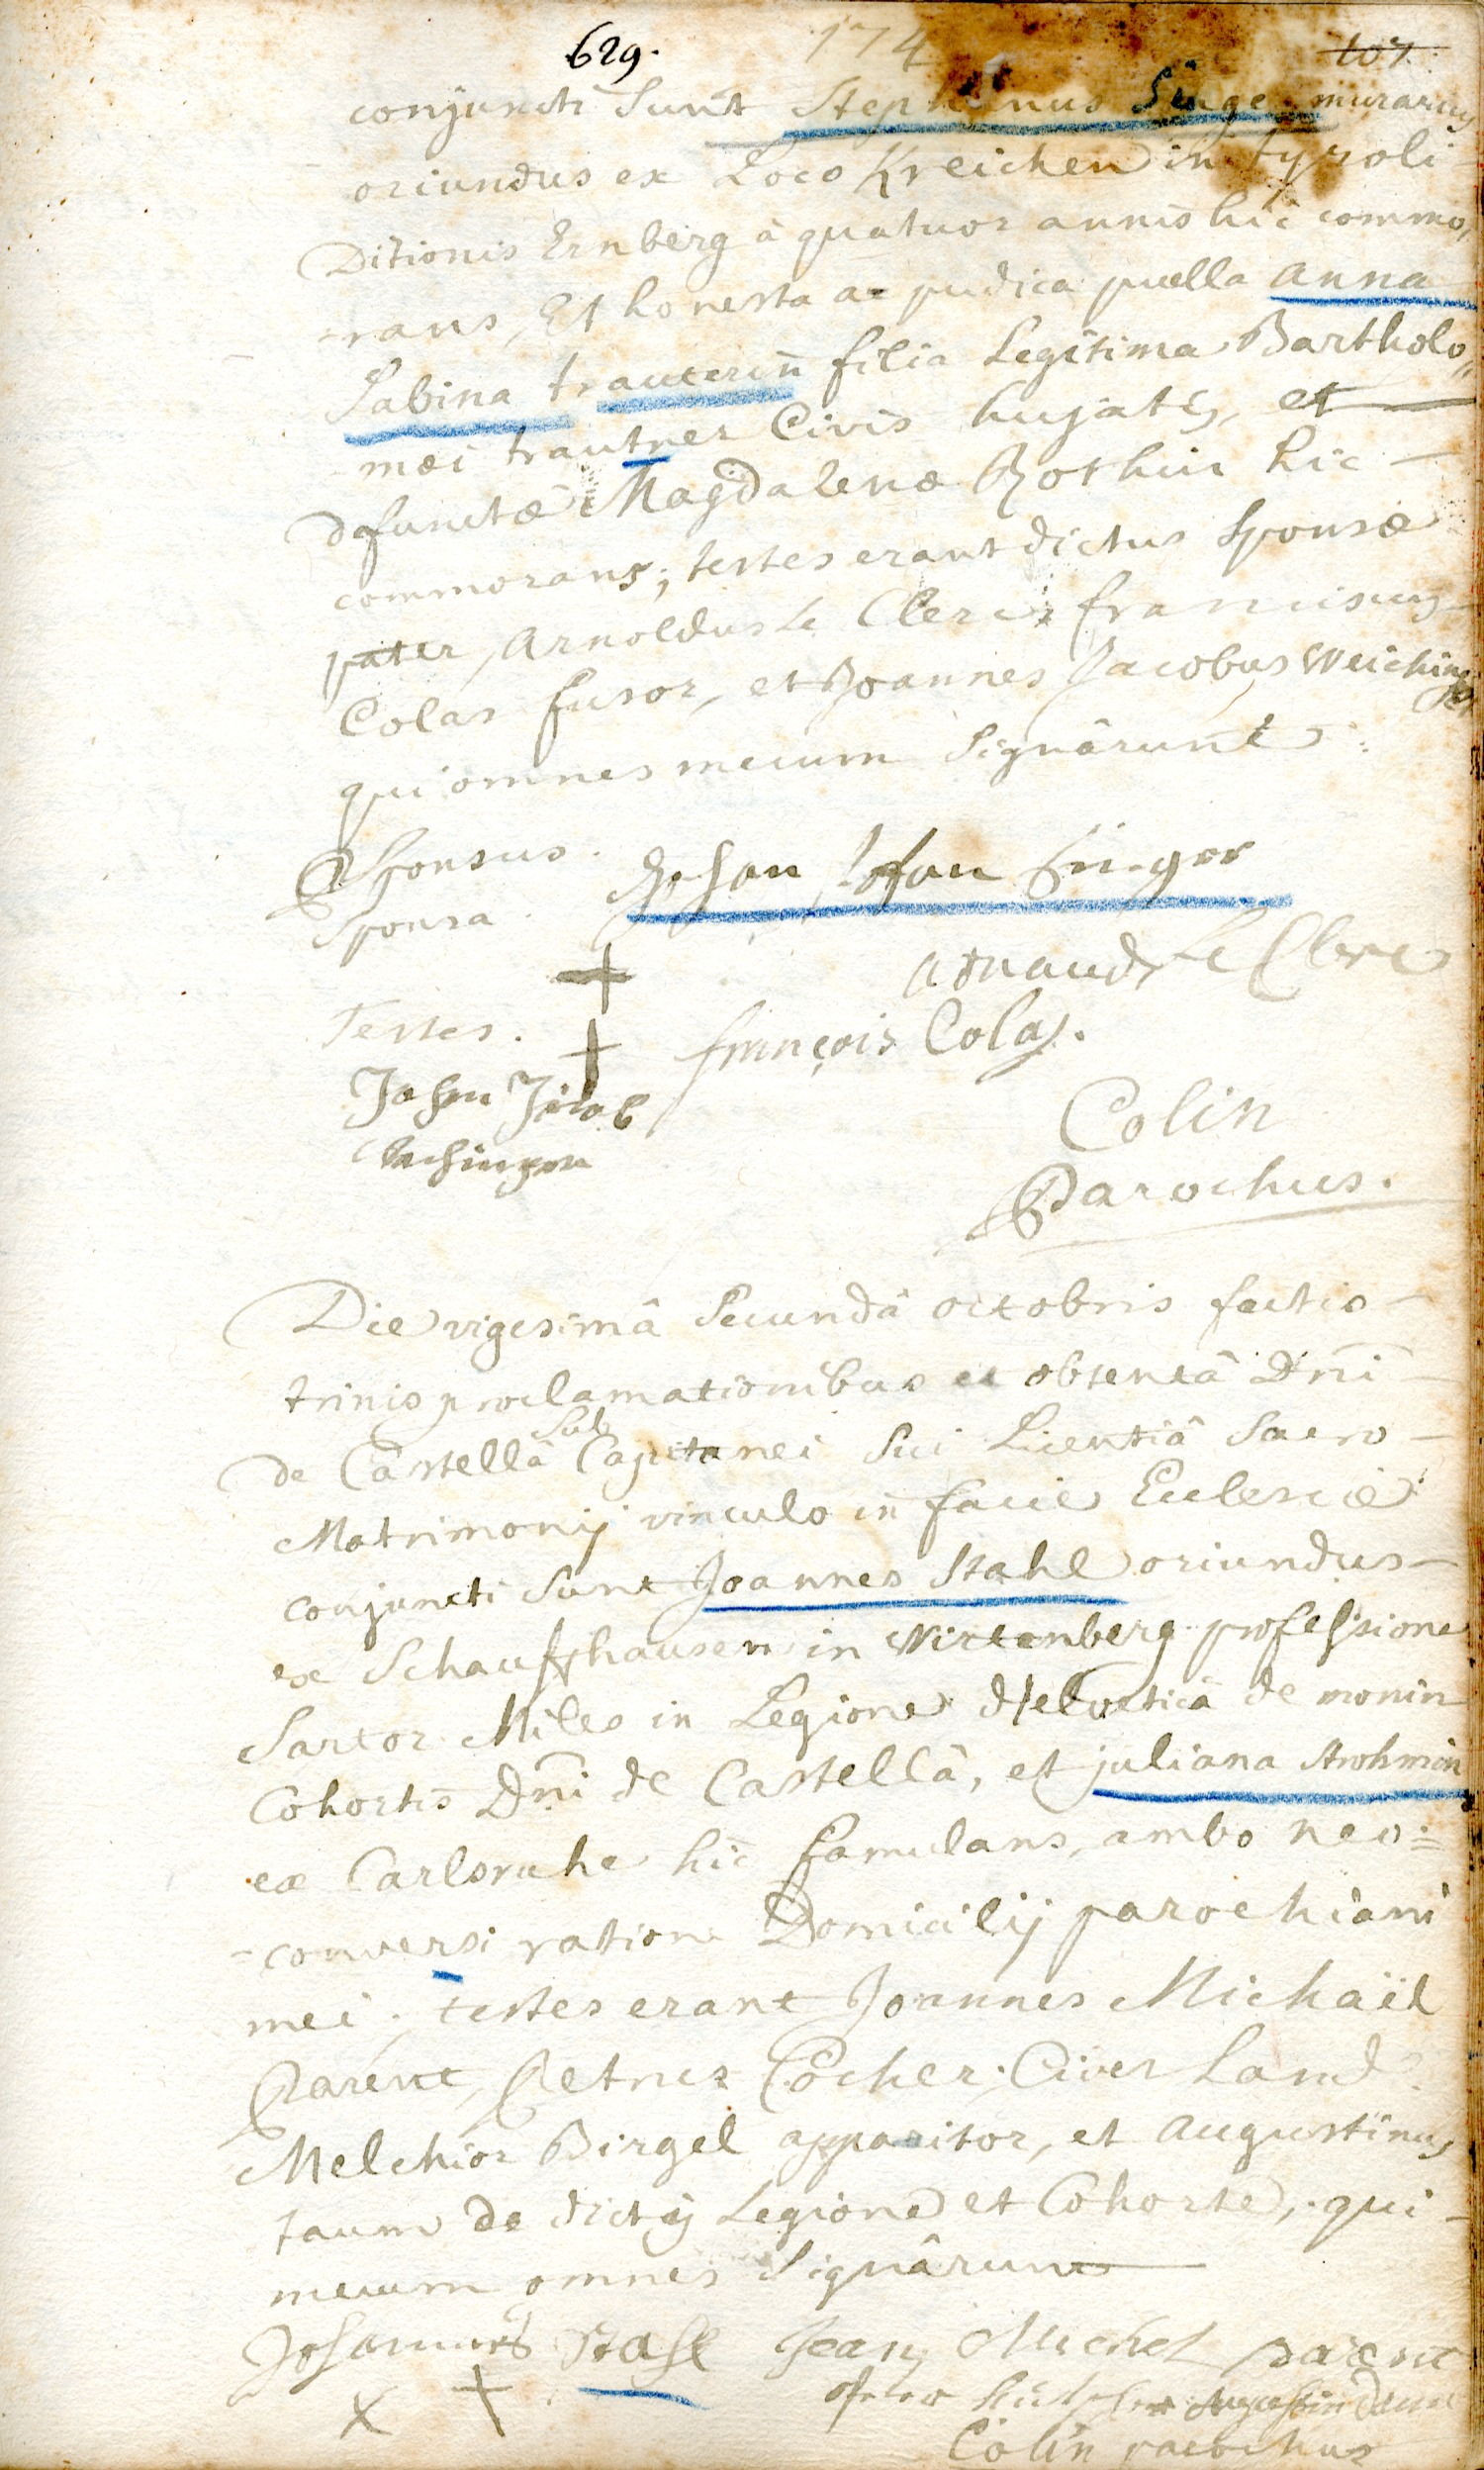 629. 174 107
conjuncti sunt Stephanus Singe murarius
oriundus ex Loco Kreichen in tyroli
Ditionis Ernberg à quatuor annis hîc commo,
rans, Et honesta ac pudica puella anna
Sabina trauterin filia Legitima Bartholo„
mæi trautner Civis hujatis, et
defunctæ Magdalenæ Rothin hic
commorans; testes erant dictus Sponsæ
pater, Arnoldus le Clerc, franciscus
Colas fusor, et Joannes Jacobus Weichinger
qui omnes mecum Signârunt
Sponsus. Johan Sofan Singer
Sponsa.
+ arnaud Le Clerc
Testes. + françois Colas.
Johan Jacob
Colin
Parochus.
Die vigesimâ Secundâ octobris factis
trinis proclamationibus et obtentâ Dni
de Castellâ Sub Capitanei Sui Licentiâ Sacro
Matrimonij vinculo in facie Ecclesiæ
conjuncti Sunt Joannes Stahl oriundus
ex Schauffhausen in Wirtenberg professione
Sartor Miles in Legione Helveticâ de monin
Cohortis Dni de Castellâ, et juliana Strohmin
ex Carlsruhe hîc famulans, ambo neo=
-conversi ratione Domicilij parochiani
mei; testes erant Joannes Michaël
Parent, Petrus Cocher; Cives Land.
Melchior Birgel apparitor, et Augustinus
taum de dictis Legione et Cohorte, qui
mecum omnes Signârunt
Johannes Stahl Jean Michel parent
X + Augustin
Colin parochus